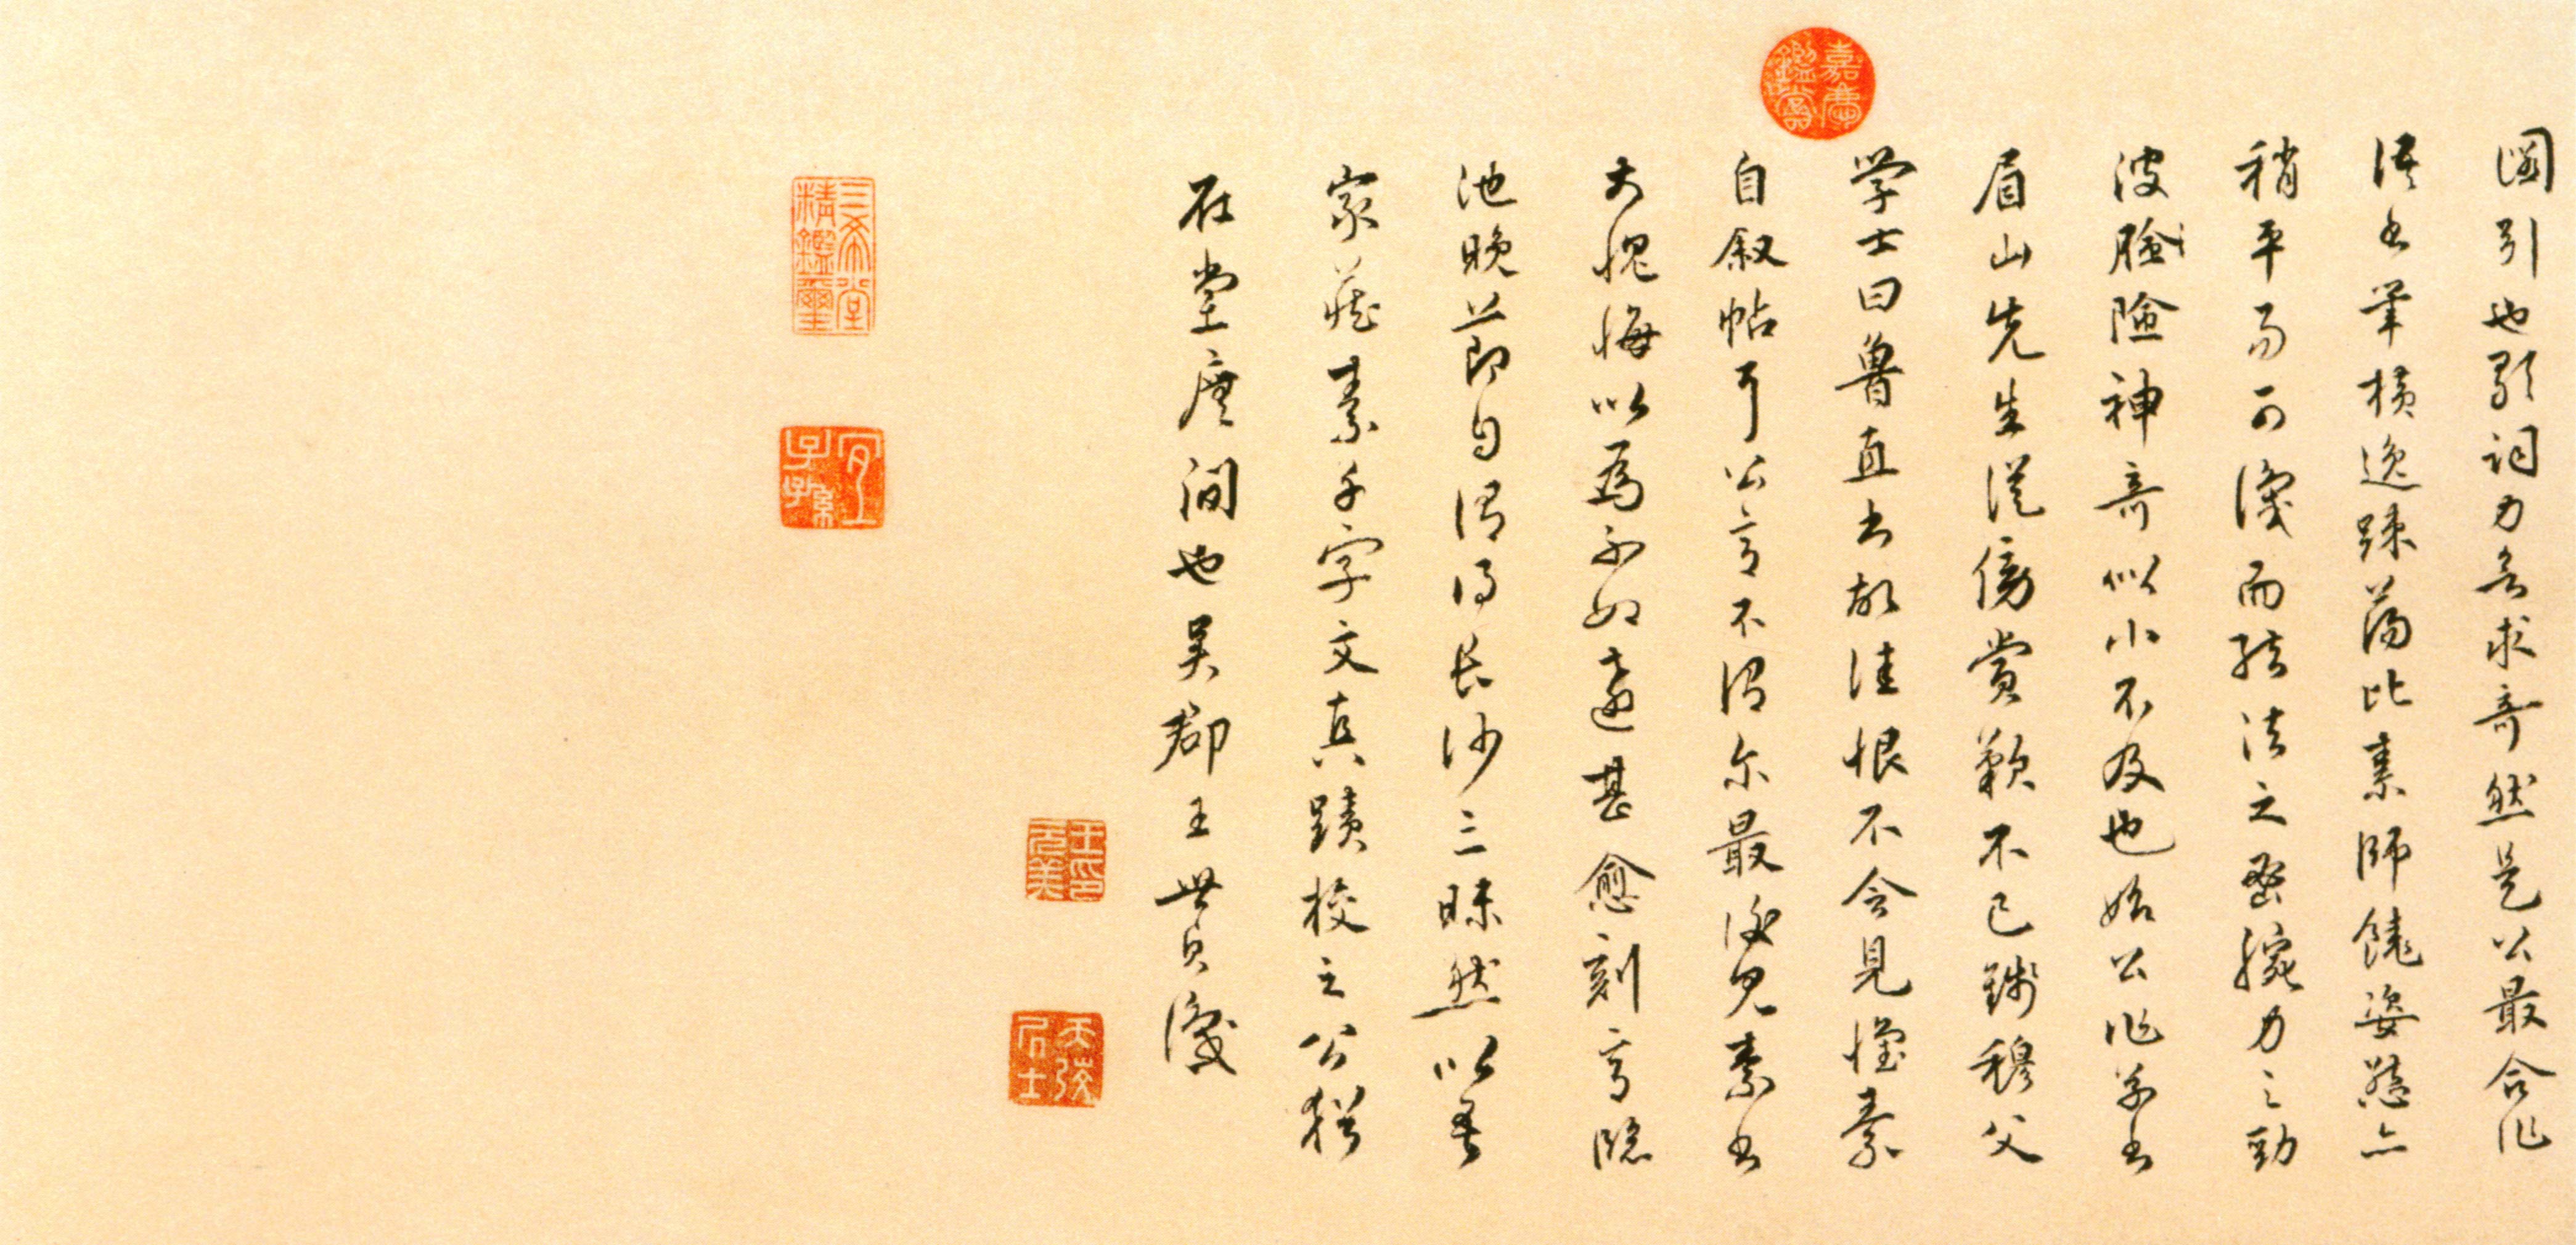 圖引也歌詞力求奇然是公最合作
語書筆橫逸踈蕩比素師饒姿態亦
稍平易可識而結法之密腕力之勁
波臉險神奇似小不及也始公作草書
眉山先生從傍賞歎不已錢穆父
学士曰魯直書故佳恨不令見懷素
自叙帖耳公言不謂尔最後見素書
大愧悔以為不如遠甚愈刻意臨
池晚節自謂得長沙三昧然以吾
家蔵素千字文真蹟校之公猶
在堂廡間也吳郡王世貞識
嘉慶鑑賞
王元美印
天弢居士
三希堂精鑑璽
宜子孫